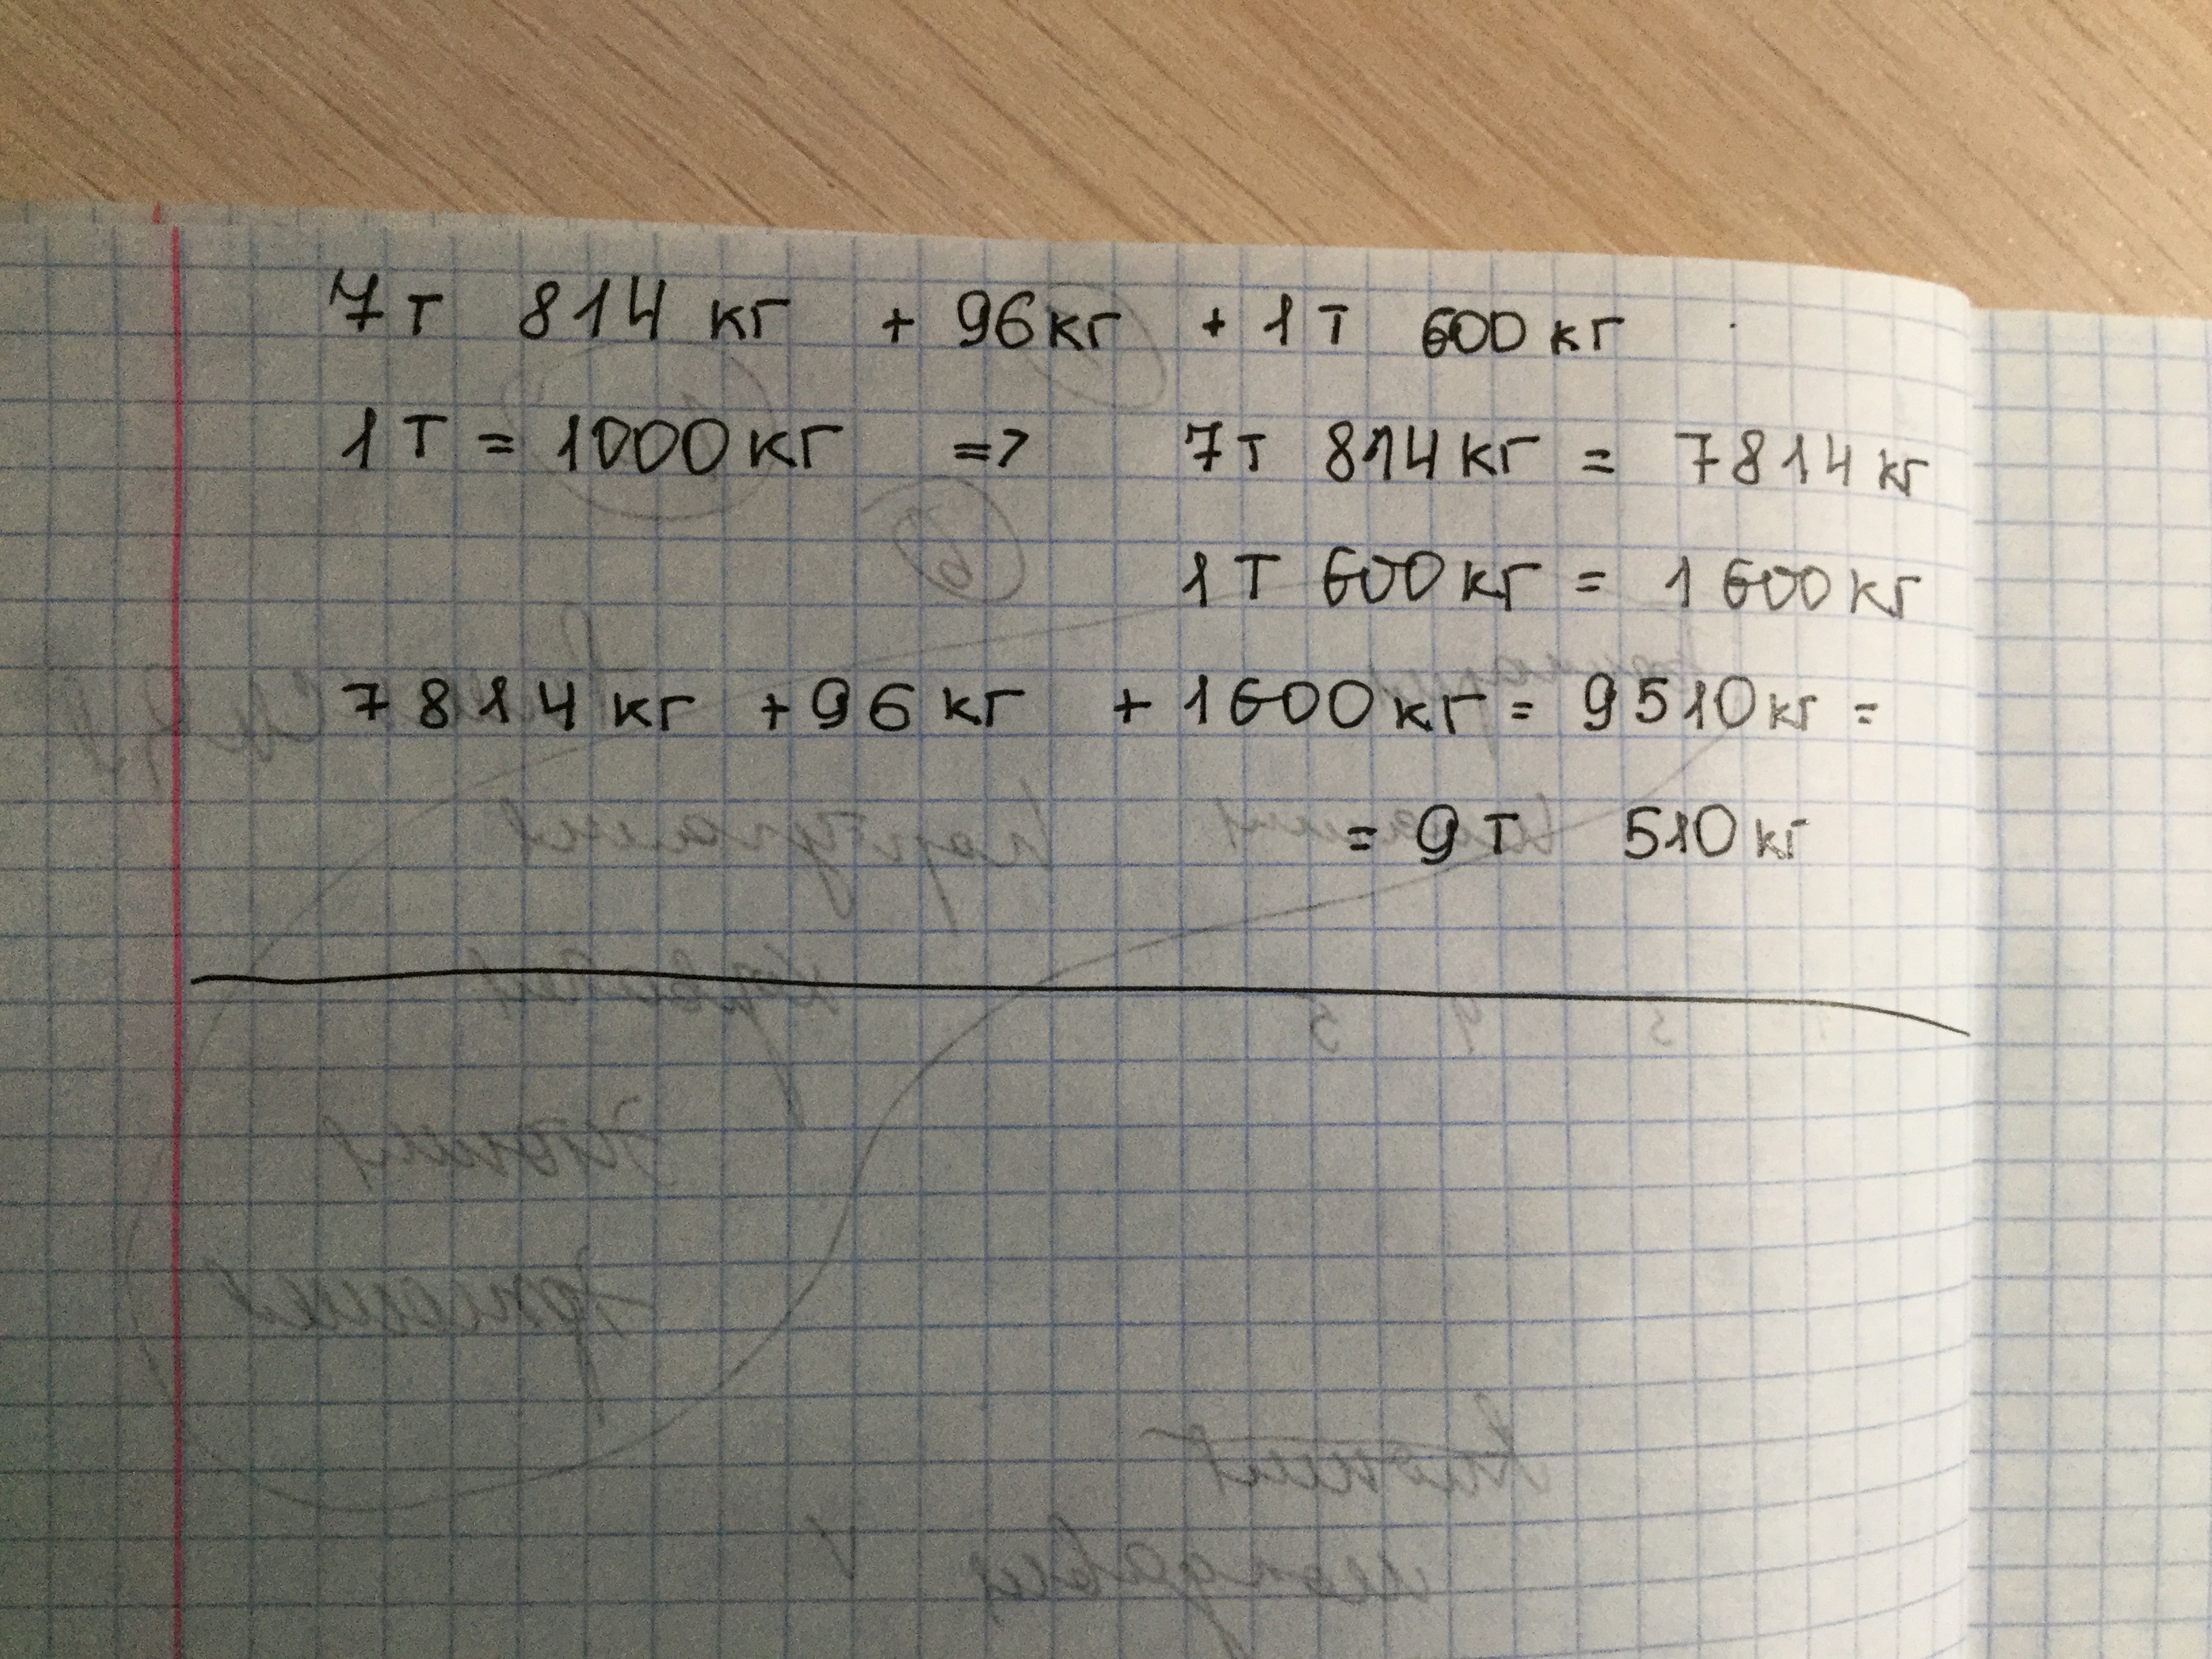 7т 814 кг + 96кг + 1т 600 кг
1т = 1000кг => 7т 814кг = 7814кг
1т 600кг = 1600кг
7814кг +96 кг + 1600кг = 9510кг =
= 9т 510кг